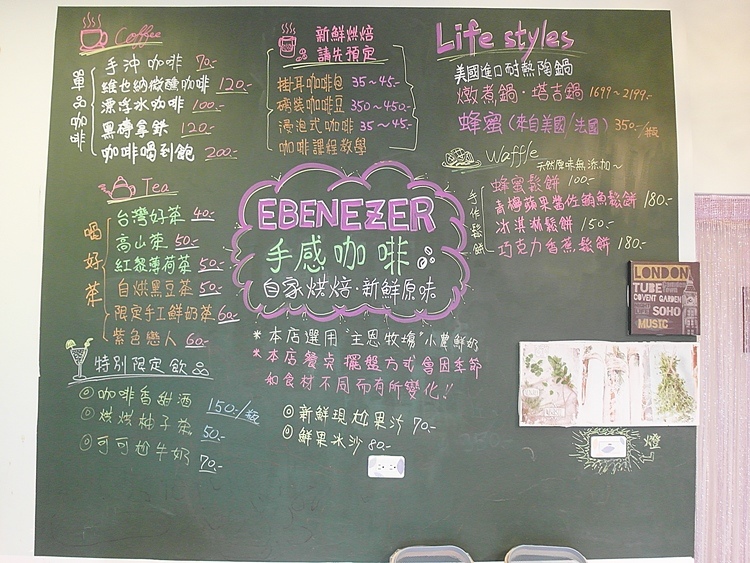 Coffee
單品咖啡
手沖咖啡 70.-
維也納微醺咖啡 120.-
漂浮冰咖啡 100.-
黑磚拿鉄 120.-
咖啡喝到飽 200.-
Tea
喝好茶
台灣好茶 40.-
高山茶 50.-
紅髮薄荷茶 50.-
自烘黑豆茶 50.-
限定手工鮮奶茶 60.-
紫色戀人 60.-
特別限定飲品
◎咖啡香甜酒 150.-/瓶
◎烘烘柚子茶 50.-
◎可可尬牛奶 70.-
新鮮烘焙
請先預定
掛耳咖啡包 35~45.-
磚裝咖啡豆 350~450.-
浸泡式咖啡 35~45.-
咖啡課程教學
EBENEZER
手感咖啡
自家烘焙·新鮮原味
*本店選用"主恩牧場"小農鮮奶
*本店餐点擺盤方式會因季節
和食材不同而有所變化!!
◎新鮮現尬果汁 70.-
◎鮮果冰沙 80.-
Life styles
美國進口耐熱陶鍋
燉煮鍋·塔吉鍋 1699~2199.-
蜂蜜(來自美國/法國) 350.-/瓶
Waffle
天然原味無添加~
手作鬆餅
蜂蜜鬆餅 100.-
青檸蘋果醬佐鮪魚鬆餅 180.-
冰淇淋鬆餅 150.-
巧克力香蕉鬆餅 180.-
LONDON
TUBE
COVENT GARDEN
SOHO
MUSIC
燈